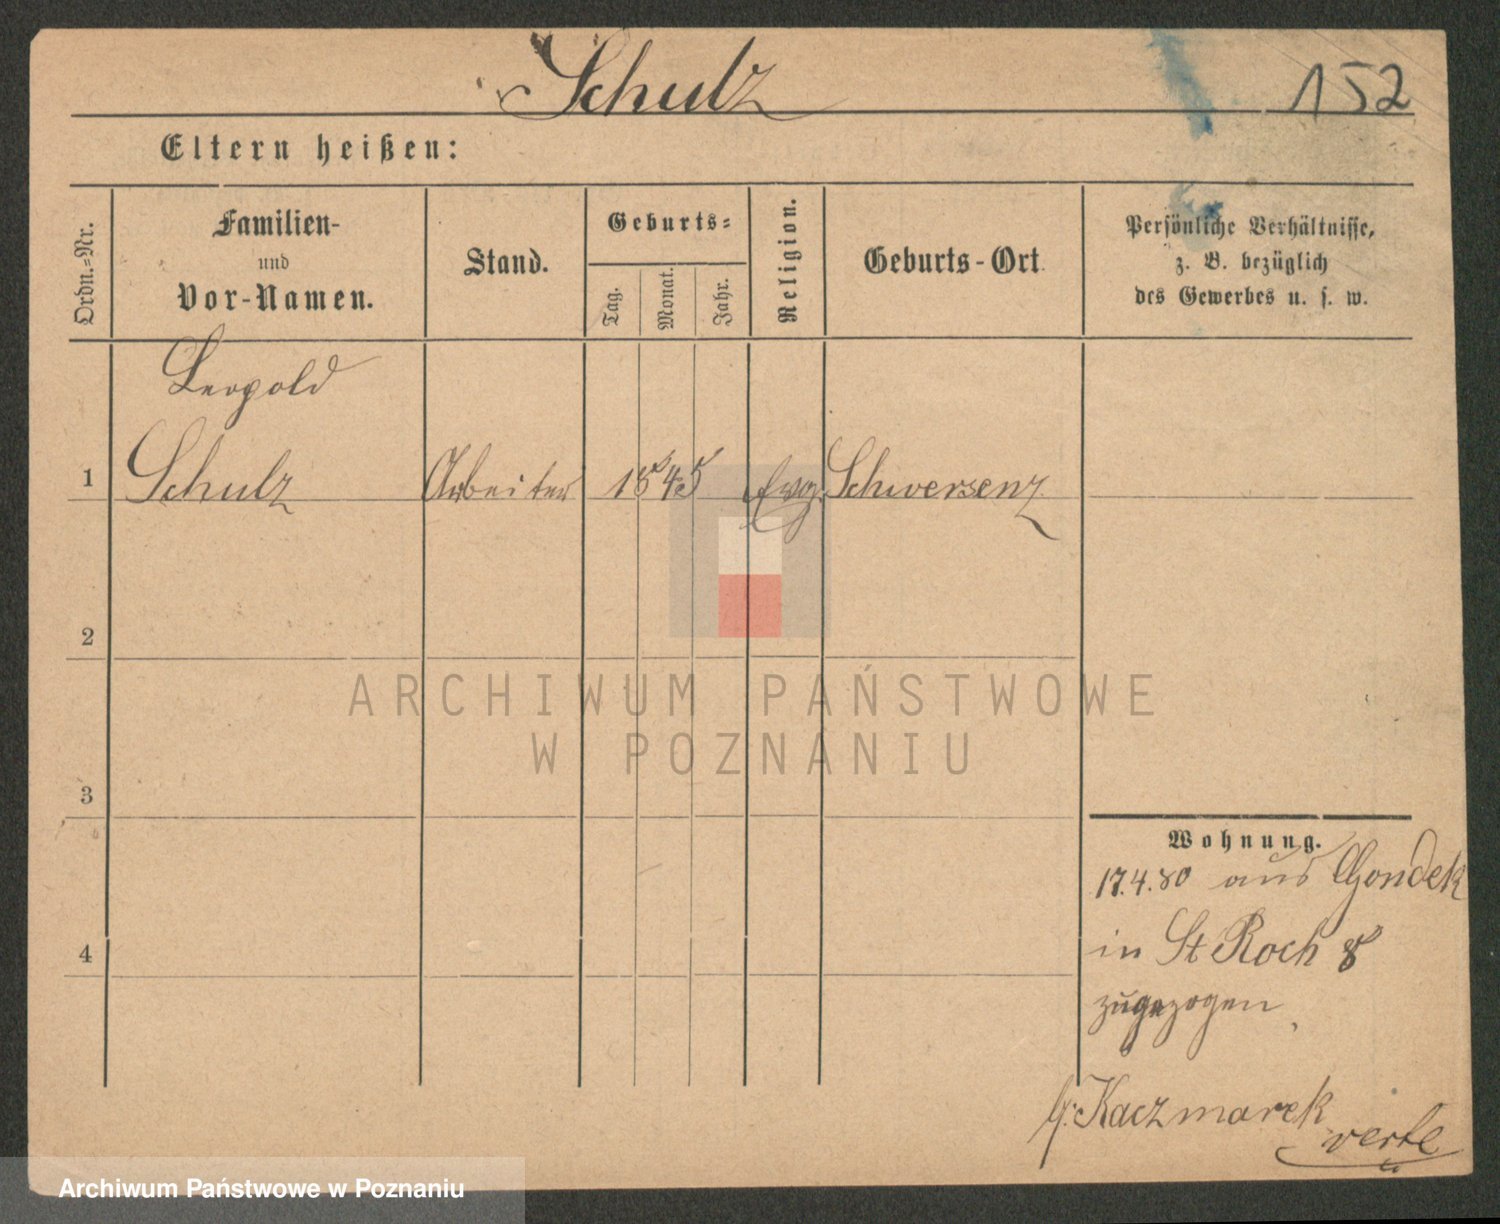 Schulz
152
Eltern heißen:
Ordn.-Nr.
Familien-
und
Vor-Namen.
Stand.
Geburts-
Tag.
Monat.
Jahr.
Religion.
Geburts-Ort
Persönliche Verhältnisse,
z. B. bezüglich
des Gewerbes u. s. w.
Leopold
1 Schulz Arbeiter 1845 Evg. Schwersenz
2
ARCHIWUM PAŃSTWOWE
W POZNANIU
3
Wohnung.
17.4.80 aus Gondek
4
in St Roch 8
zugezogen
Kaczmarek
verte
Archiwum Państwowe w Poznaniu